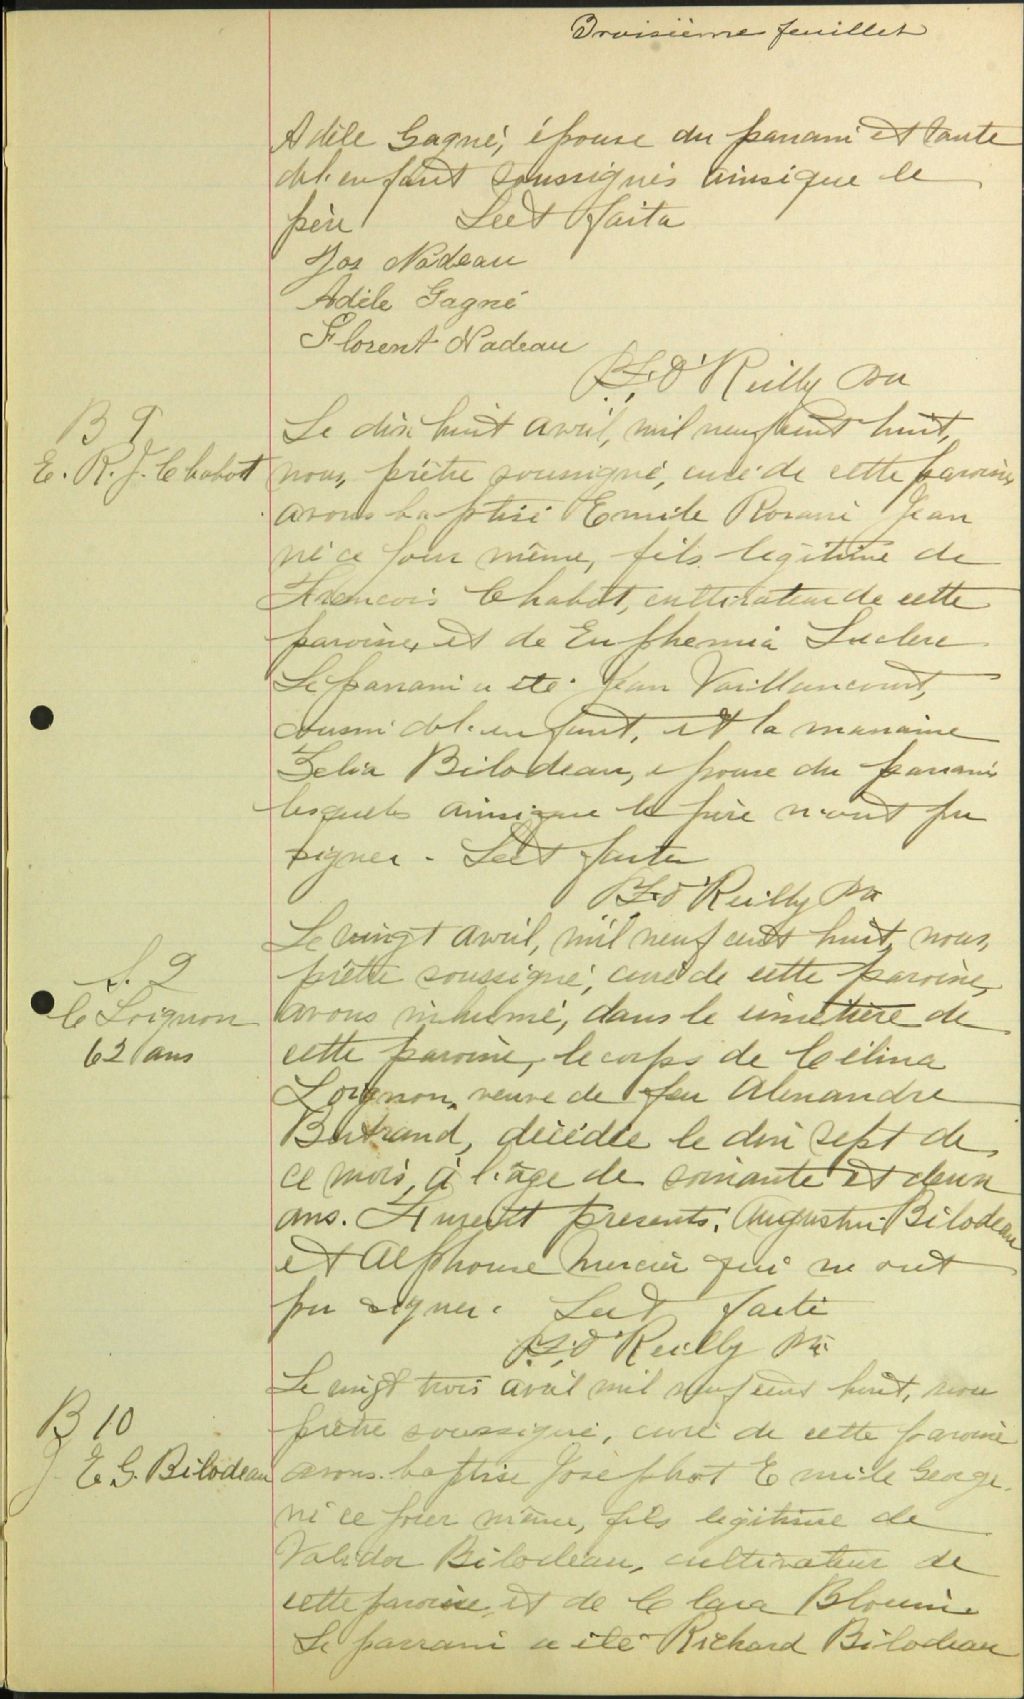 Troisième feuillet
Adèle Gagné, épouse du parrain et tante
de l'enfant soussignés ainsi que le
père Lect. faite
Jos Nadeau
Adèle Gagné
Florent Nadeau
O'Reilly Ptre
B 9
E. R. J. Chabot
Le dix huit avril, mil neuf cent huit,
nous, prêtre soussigné, curé de cette paroisse
avons baptisé Emile Rosaire Jean
né ce jour même, fils légitime de
Francois Chabot, cultivateur de cette
paroisse, et de Euphemia Leclerc
Le parrain a été Jean Vaillancourt,
cousin de l'enfant, et la marraine
Zelia Bilodeau, epouse du parrain
lesquels ainsi que le père n'ont pu
signer. Lect faite
O'Reilly Ptre
S. 2
C Loignon
62 ans
Le vingt avril, mil neuf cent huit, nous,
prêtre soussigné, curé de cette paroisse,
avons inhumé, dans le cimetière de
cette paroisse, le corps de Célina
Loignon, veuve de feu Alexandre
Bertrand, décédée le dix sept de
ce mois, à l'âge de soixante et deux
ans. Furent présents: Augustin Bilodeau
et Alphonse Mercier qui ne ont
pu signer. Lect faite
O'Reilly Ptre
B 10
J. E G. Bilodeau
Le vingt trois avril mil neuf cent huit, nou
prêtre soussigné, curé de cette paroisse
avons baptisé Joseph Emile George
né ce jour même, fils légitime de
Bilodeau, cultivateur de
cette paroisse, et de Clara Blouin
Le parrain a été Richard Bilodeau